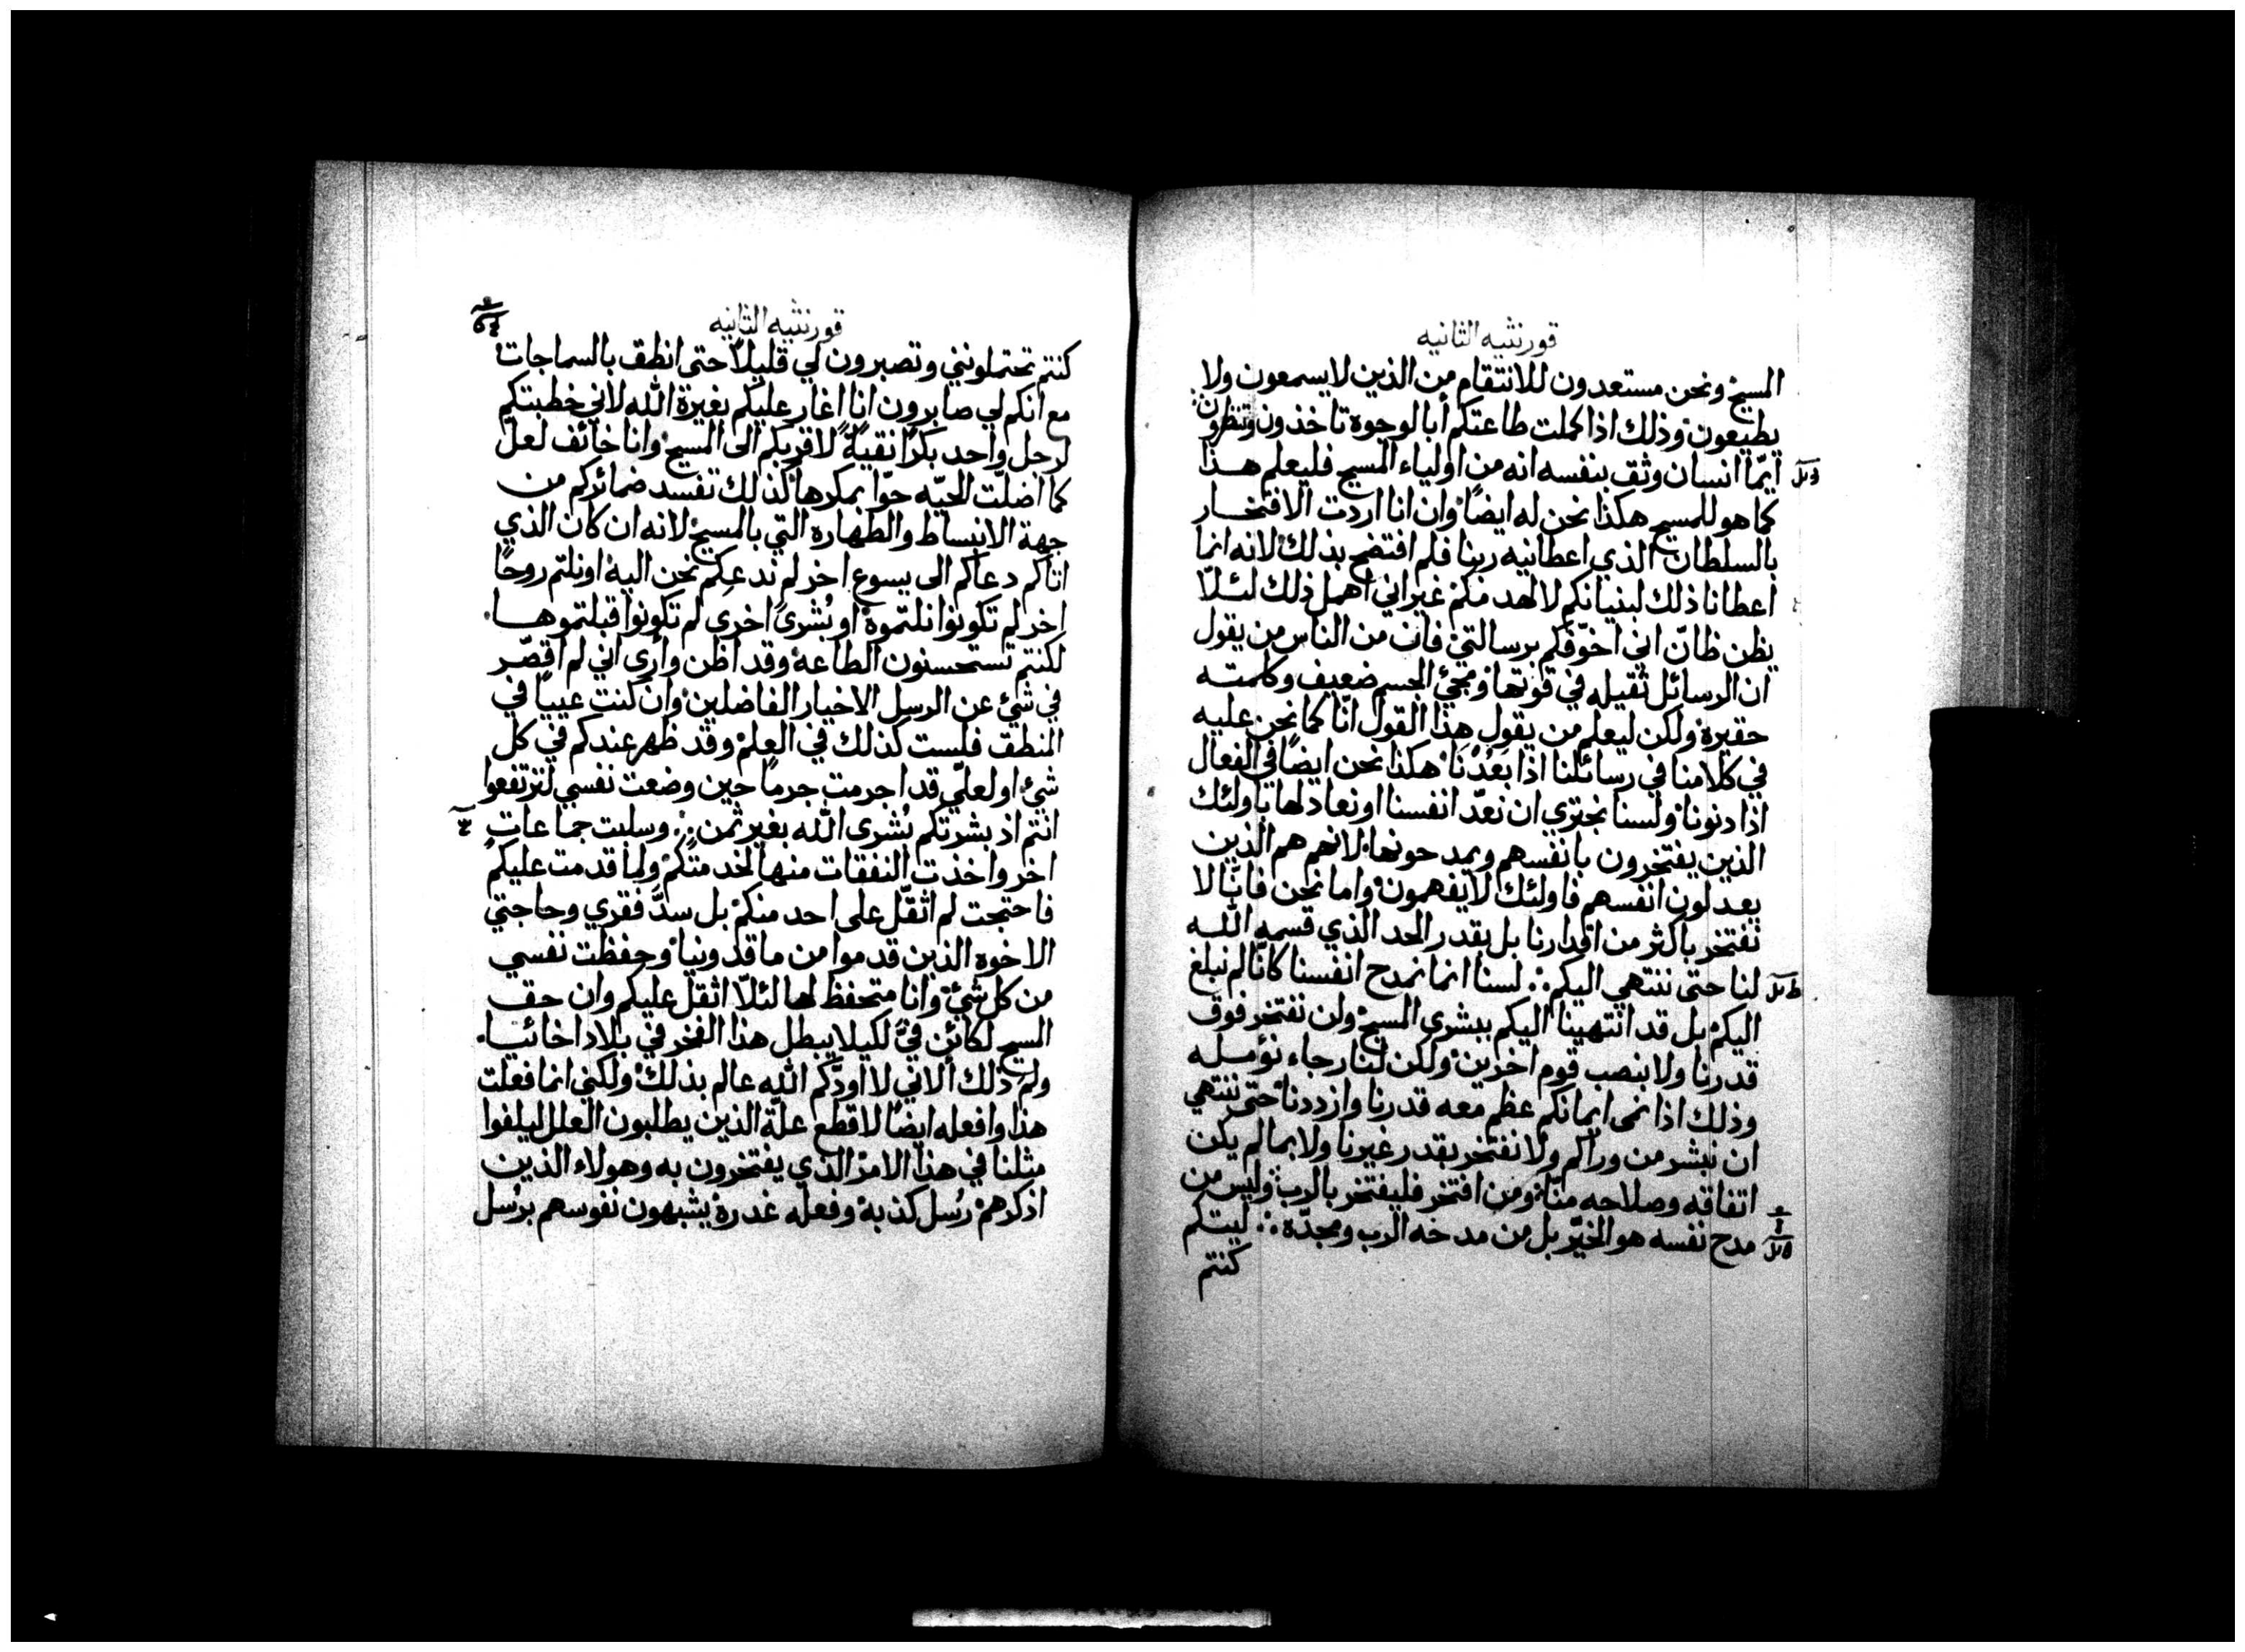 قورنثيه الثانيه
المسيح ونحن مستعدون للانتقام من الذين لا يسمعون ولا
يطيعون وذلك اذا كملت طاعتكم أبالوجوه تاخذون وتنظرون
ايّما انسان وثق بنفسه انه من اولياء المسيح فليعلم هذا
كما هو للمسيح هكذا نحن له ايضًا وان انا اردت الافتخار
بالسلطان الذي اعطانيه ربنا فلم افتضح بذلك لانه انما
اعطانا ذلك لبنيانكم لا لهدمكم غير اني اهمل ذلك لئلّا
يظن ظانّ اني اخوّفكم برسالتي فان من الناس من يقول
ان الرسائل ثقيله في قوتها ومجئ الجسم ضعيف وكلمته
حقيرة ولكن ليعلم من يقول هذا القول انّا كما نحن عليه
في كلامنا في رسائلنا اذا بَعُدْنَا هكذا نحن ايضًا في الفعال
اذا دنونا ولسنا نجتري ان نعدّ انفسنا او نعادلها باولئك
الذين يفتخرون بانفسهم ويمدحونها لانهم هم الذين
يعدلون انفسهم فاولئك لا يفهمون واما نحن فانّا لا
نفتخر باكثر من اقدارنا بل بقدر الحد الذي قسمه الله
لنا حتى ننتهي اليكم ∴ لسنا انما نمدح انفسنا كانّا لم نبلغ
اليكم بل قد انتهينا اليكم ببشرى المسيح ولن نفتخر فوق
قدرنا ولا بنصب قوم اخرين ولكن لنا رجاء نؤمله
وذلك اذا نمى ايمانكم عظم معه قدرنا وازددنا حتى ننتهي
ان نبشر من وراكم ولا نفتخر بقدر غيرنا ولا بما لم يكن
اتفاقه وصلاحه منّا ومن افتخر فليفتخر بالرب وليس من
مدح نفسه هو الخيّر بل من مدحه الرب ومجدّه ∴ ليتكم
كنتم
قورنثيه الثانيه
كنتم تحتملونني وتصبرون لي قليلًا حتى انطق بالسماجات
مع انكم لي صابرون انا اغار عليكم بغيرة الله لاني خطبتكم
لرجل واحد بكرًا نقيةً لاقربكم الى المسيح وانا خائف لعل
كما اضلّت الحيّه حوّا بمكرها كذلك تفسد ضمائركم من
جهة الانبساط والطهاره التي بالمسيح لانه ان كان الذي
اتاكم دعاكم الى يسوع اخر لم ندعكم نحن اليه او نلتم روحًا
اخر لم تكونوا نلتموه او بُشرىً اخرى لم تكونوا قبلتموها
لكنتم تستحسنون الطاعه وقد اظن وأرى اني لم اقصّر
في شئ عن الرسل الاخيار الفاضلين وان كنت عييًا في
المنطق فلست كذلك في العلم وقد ظهر عندكم في كل
شئ او لعلّي قد اجرمت جرمًا حين وضعت نفسي لترتفعوا
انتم اذ بشرتكم بُشرى الله بغير ثمن ∴ وسلبت جماعات
اخر واخذت النفقات منها لخدمتكم ولما قدمت عليكم
فاحتجت لم اثقّل على احد منكم بل سدَّ فقري وحاجتي
الاخوه الذين قدموا من ماقدونيا وحفظت نفسي
من كل شئ وانا متحفظ لها لئلّا اثقل عليكم وان حق
المسيح لكائن فيّ لكيلا يبطل هذا الفخر في بلاد اخائيا
ولم ذلك ألاني لا اودّكم الله عالم بذلك ولكنى انما فعلت
هذا وافعله ايضًا لاقطع علّة الذين يطلبون العلل ليلفوا
مثلنا في هذا الامر الذي يفتخرون به وهولاء الذين
اذكرهم رُسل كذبة وفعله غدرة يشبهون نفوسهم برُسل